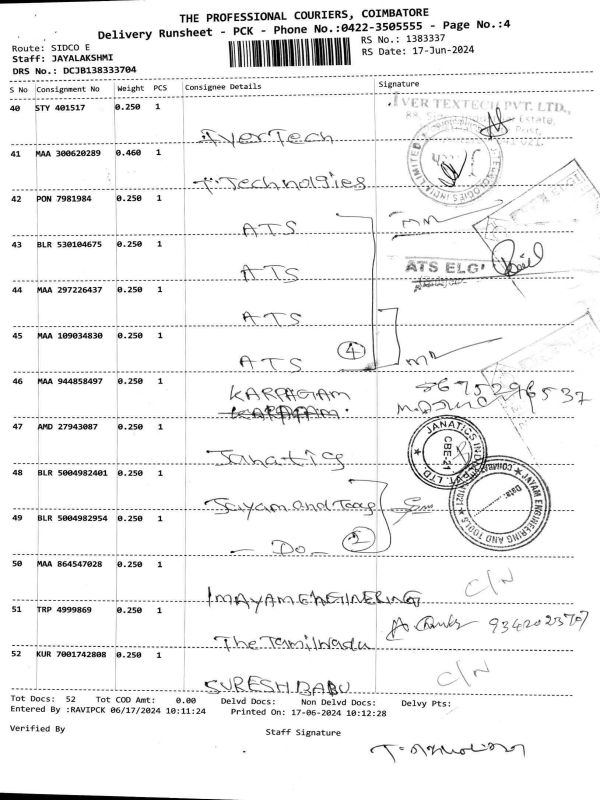 THE PROFESSIONAL COURIERS, COIMBATORE
Delivery Runsheet - PCK - Phone No.:0422-3505555 - Page No.:4
Route: SIDCO E
Staff: JAYALAKSHMI
DRS No.: DCJB138333704
RS No.: 1383337
RS Date: 17-Jun-2024
S No Consignment No Weight PCS Consignee Details Signature
40 STY 401517 0.250 1
AverTech
AVER TEXTECH PVT. LTD.,
41 MAA 300620289 0.460 1
T.Technolgies
42 PON 7981984 0.250 1
ATS
43 BLR 530104675 0.250 1
ATS
ATS ELGI
44 MAA 297226437 0.250 1
ATS
45 MAA 109034830 0.250 1
ATS 4
46 MAA 944858497 0.250 1
KARPAGAM
47 AMD 27943087 0.250 1
Janatis
CBE-21
48 BLR 5004982401 0.250 1
Jayam and Toog
49 BLR 5004982954 0.250 1
- Do - 2
JAYAM ENGINEERING AND TOOLS
Date:
50 MAA 864547028 0.250 1
IMAYAM ENGINERING C/N
51 TRP 4999869 0.250 1
The Tamilnadu 9342023707
52 KUR 7001742808 0.250 1
SURESH BABU C/N
Tot Docs: 52 Tot COD Amt: 0.00 Delvd Docs: Non Delvd Docs: Delvy Pts:
Entered By :RAVIPCK 06/17/2024 10:11:24 Printed On: 17-06-2024 10:12:28
Verified By Staff Signature